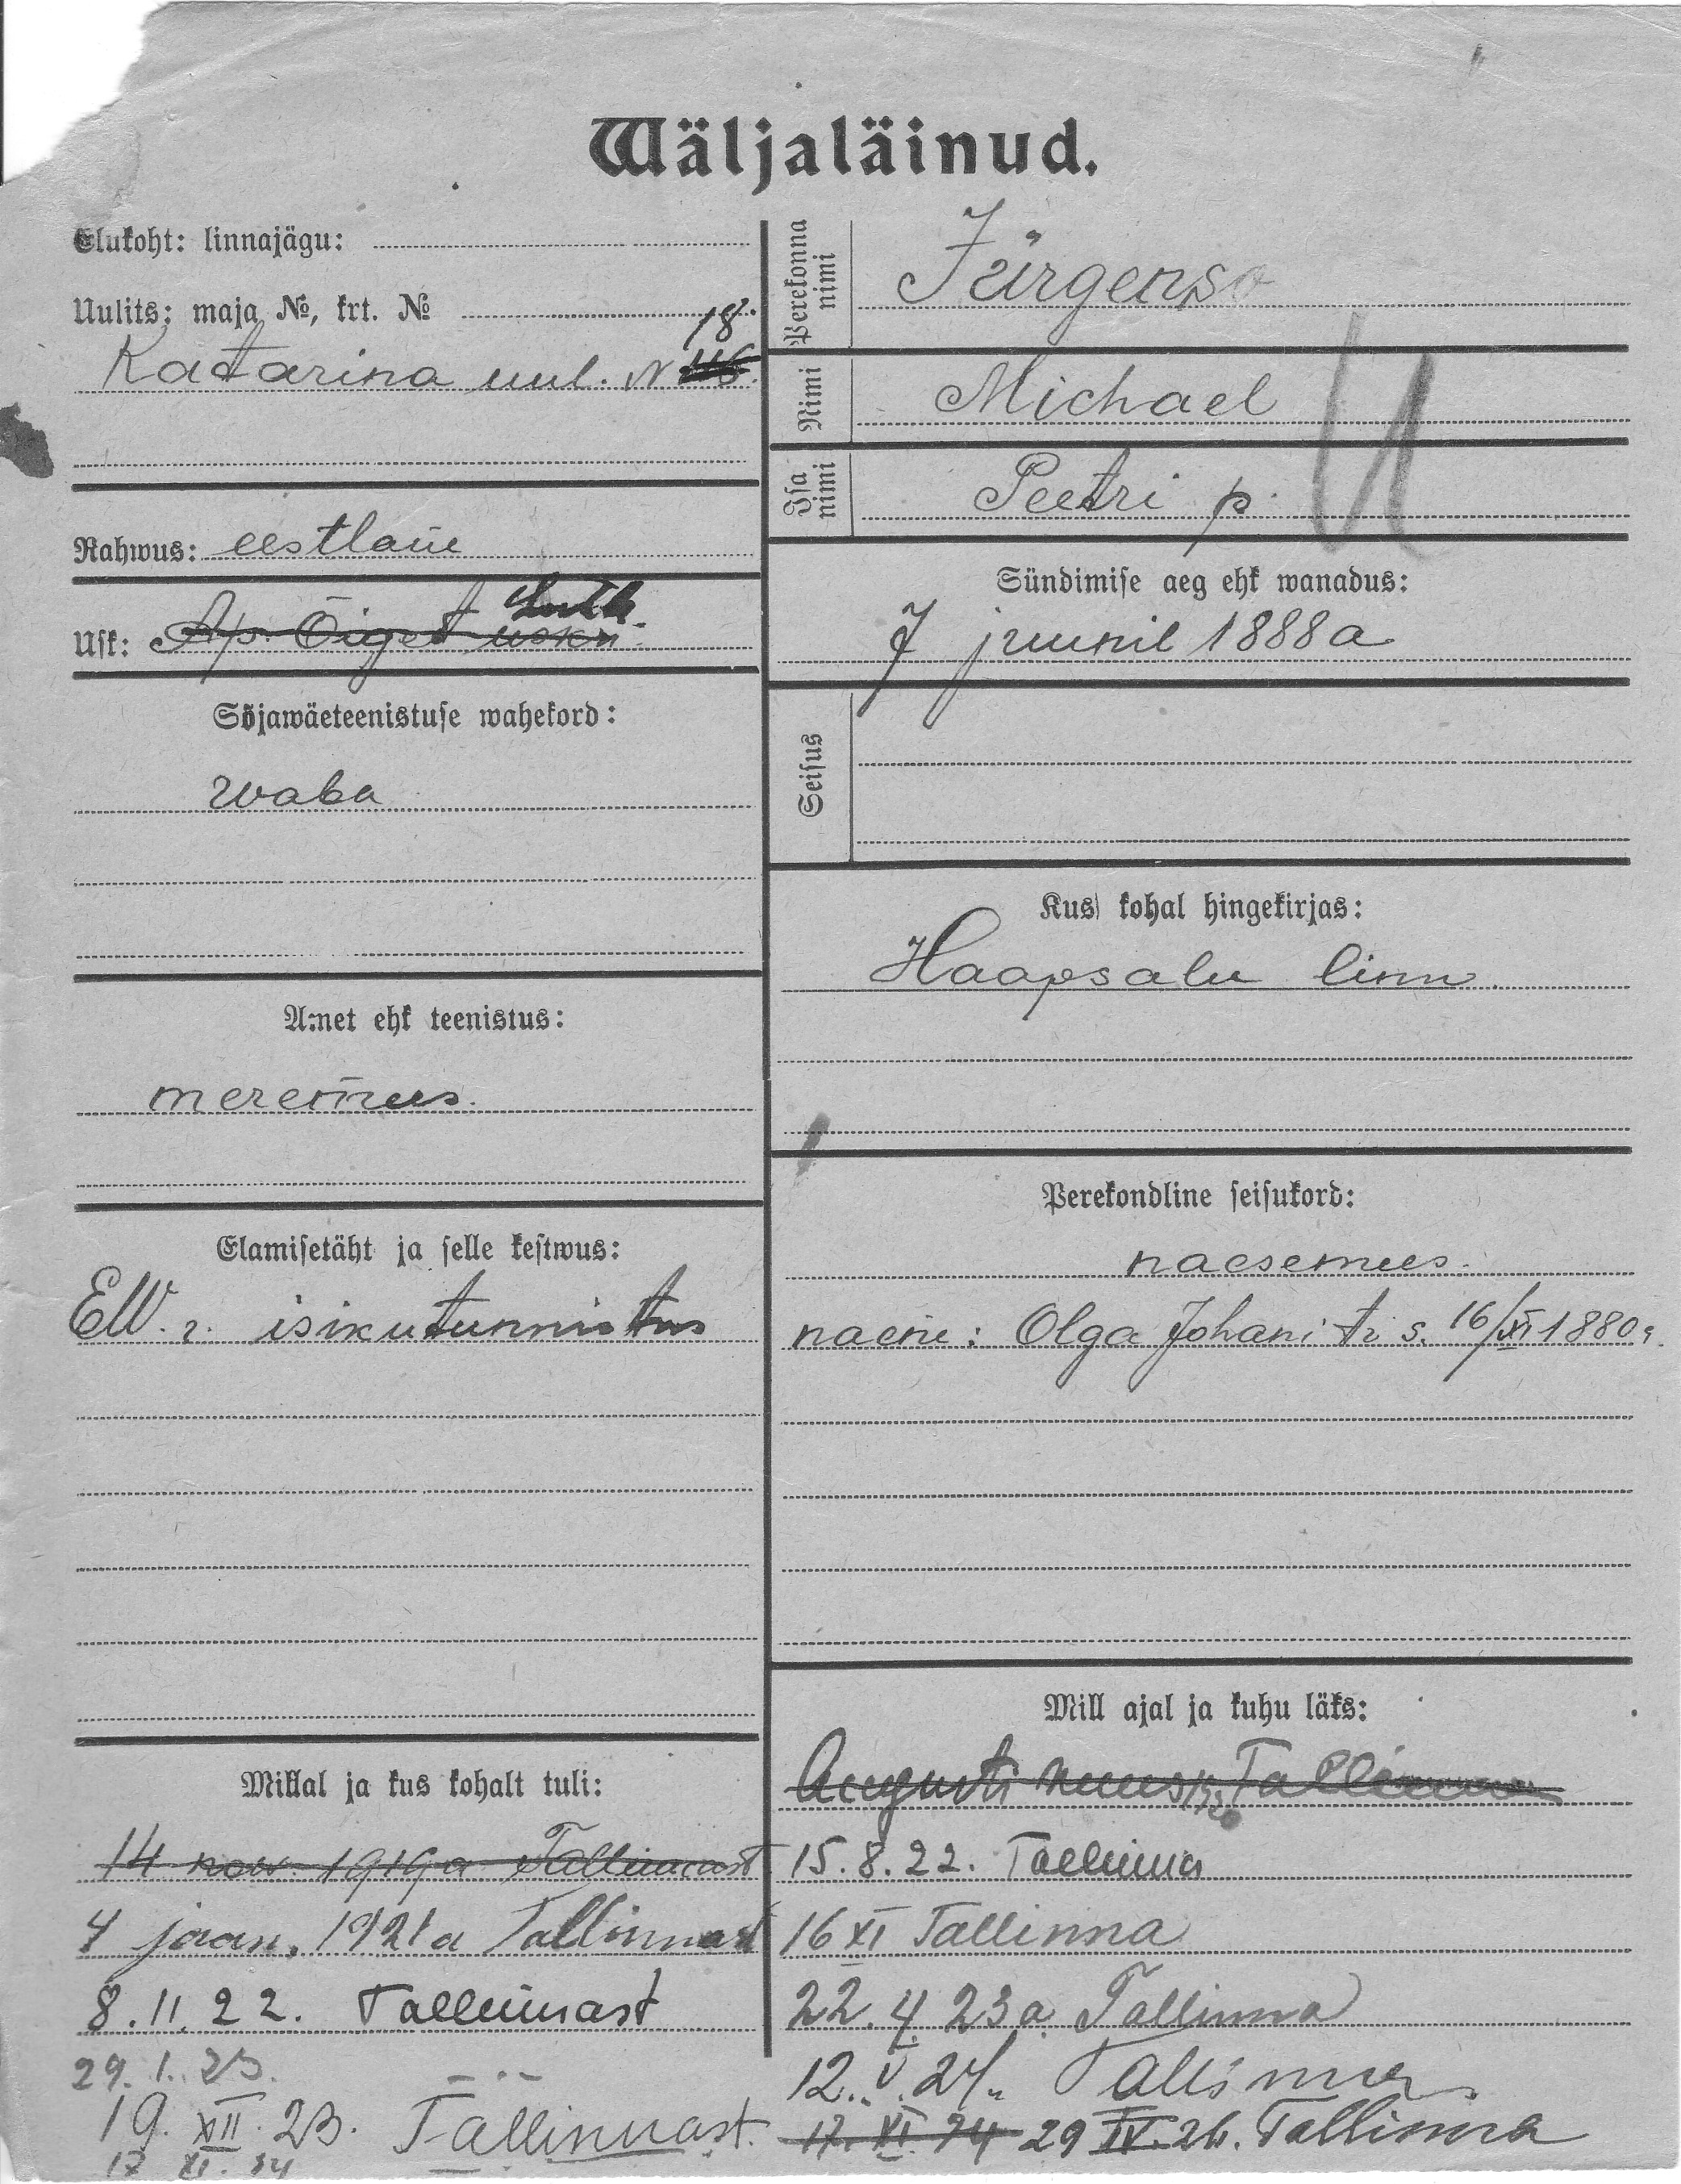 Wäljaläinud.
Elukoht: linnajägu:
Uulits; maja №, krt. №
18.
Katarina uul. N
Rahwus: eestlane
Luth.
Usk: Ap. Õiget usku
Sõjawäeteenistuse wahekord:
waba
Amet ehk teenistus:
meremees.
Elamisetäht ja selle kestwus:
EW. r. isikutunnistus
Millal ja kus kohalt tuli:
14 now. 1919 a Tallinnast
4 jaan. 1921 a Tallinnast
8.11.22. Tallinnast
29.1.23. – " –
19. XII. 23. Tallinnast.
17 XI. 24
Perekonna nimi
Jürgenso
Nimi
Michael
Isa nimi
Peetri p.
Sündimise aeg ehk wanadus:
7 juunil 1888 a
Seisus
Kus kohal hingekirjas:
Haapsalu linn
Perekondline seisukord:
naesemees.
naene: Olga Johani tr s. 16/XI 1880 a.
Mill ajal ja kuhu läks:
Augusti kuus 1920 Tallinna
15.8.22. Tallinna
16 XI Tallinna
22. 4. 23 a. Tallinna
12. V. 24. Tallinna
17. XI. 24 29 IV. 26. Tallinna